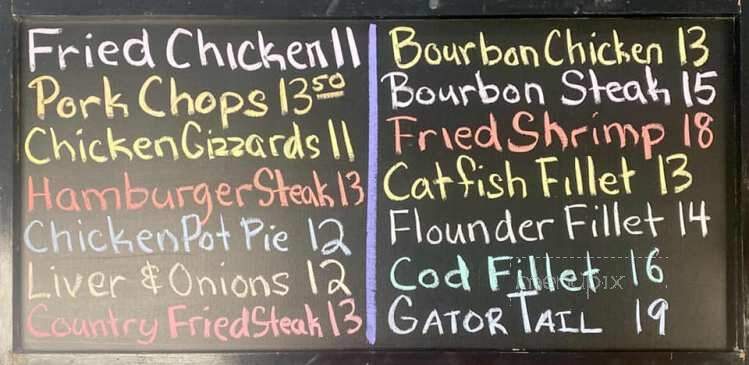 Fried Chicken 11
Pork Chops 13 50
Chicken Gizzards 11
Hamburger Steak 13
Chicken Pot Pie 12
Liver & Onions 12
Country Fried Steak 13
Bourbon Chicken 13
Bourbon Steak 15
Fried Shrimp 18
Catfish Fillet 13
Flounder Fillet 14
Cod Fillet 16
menupix
GATOR TAIL 19